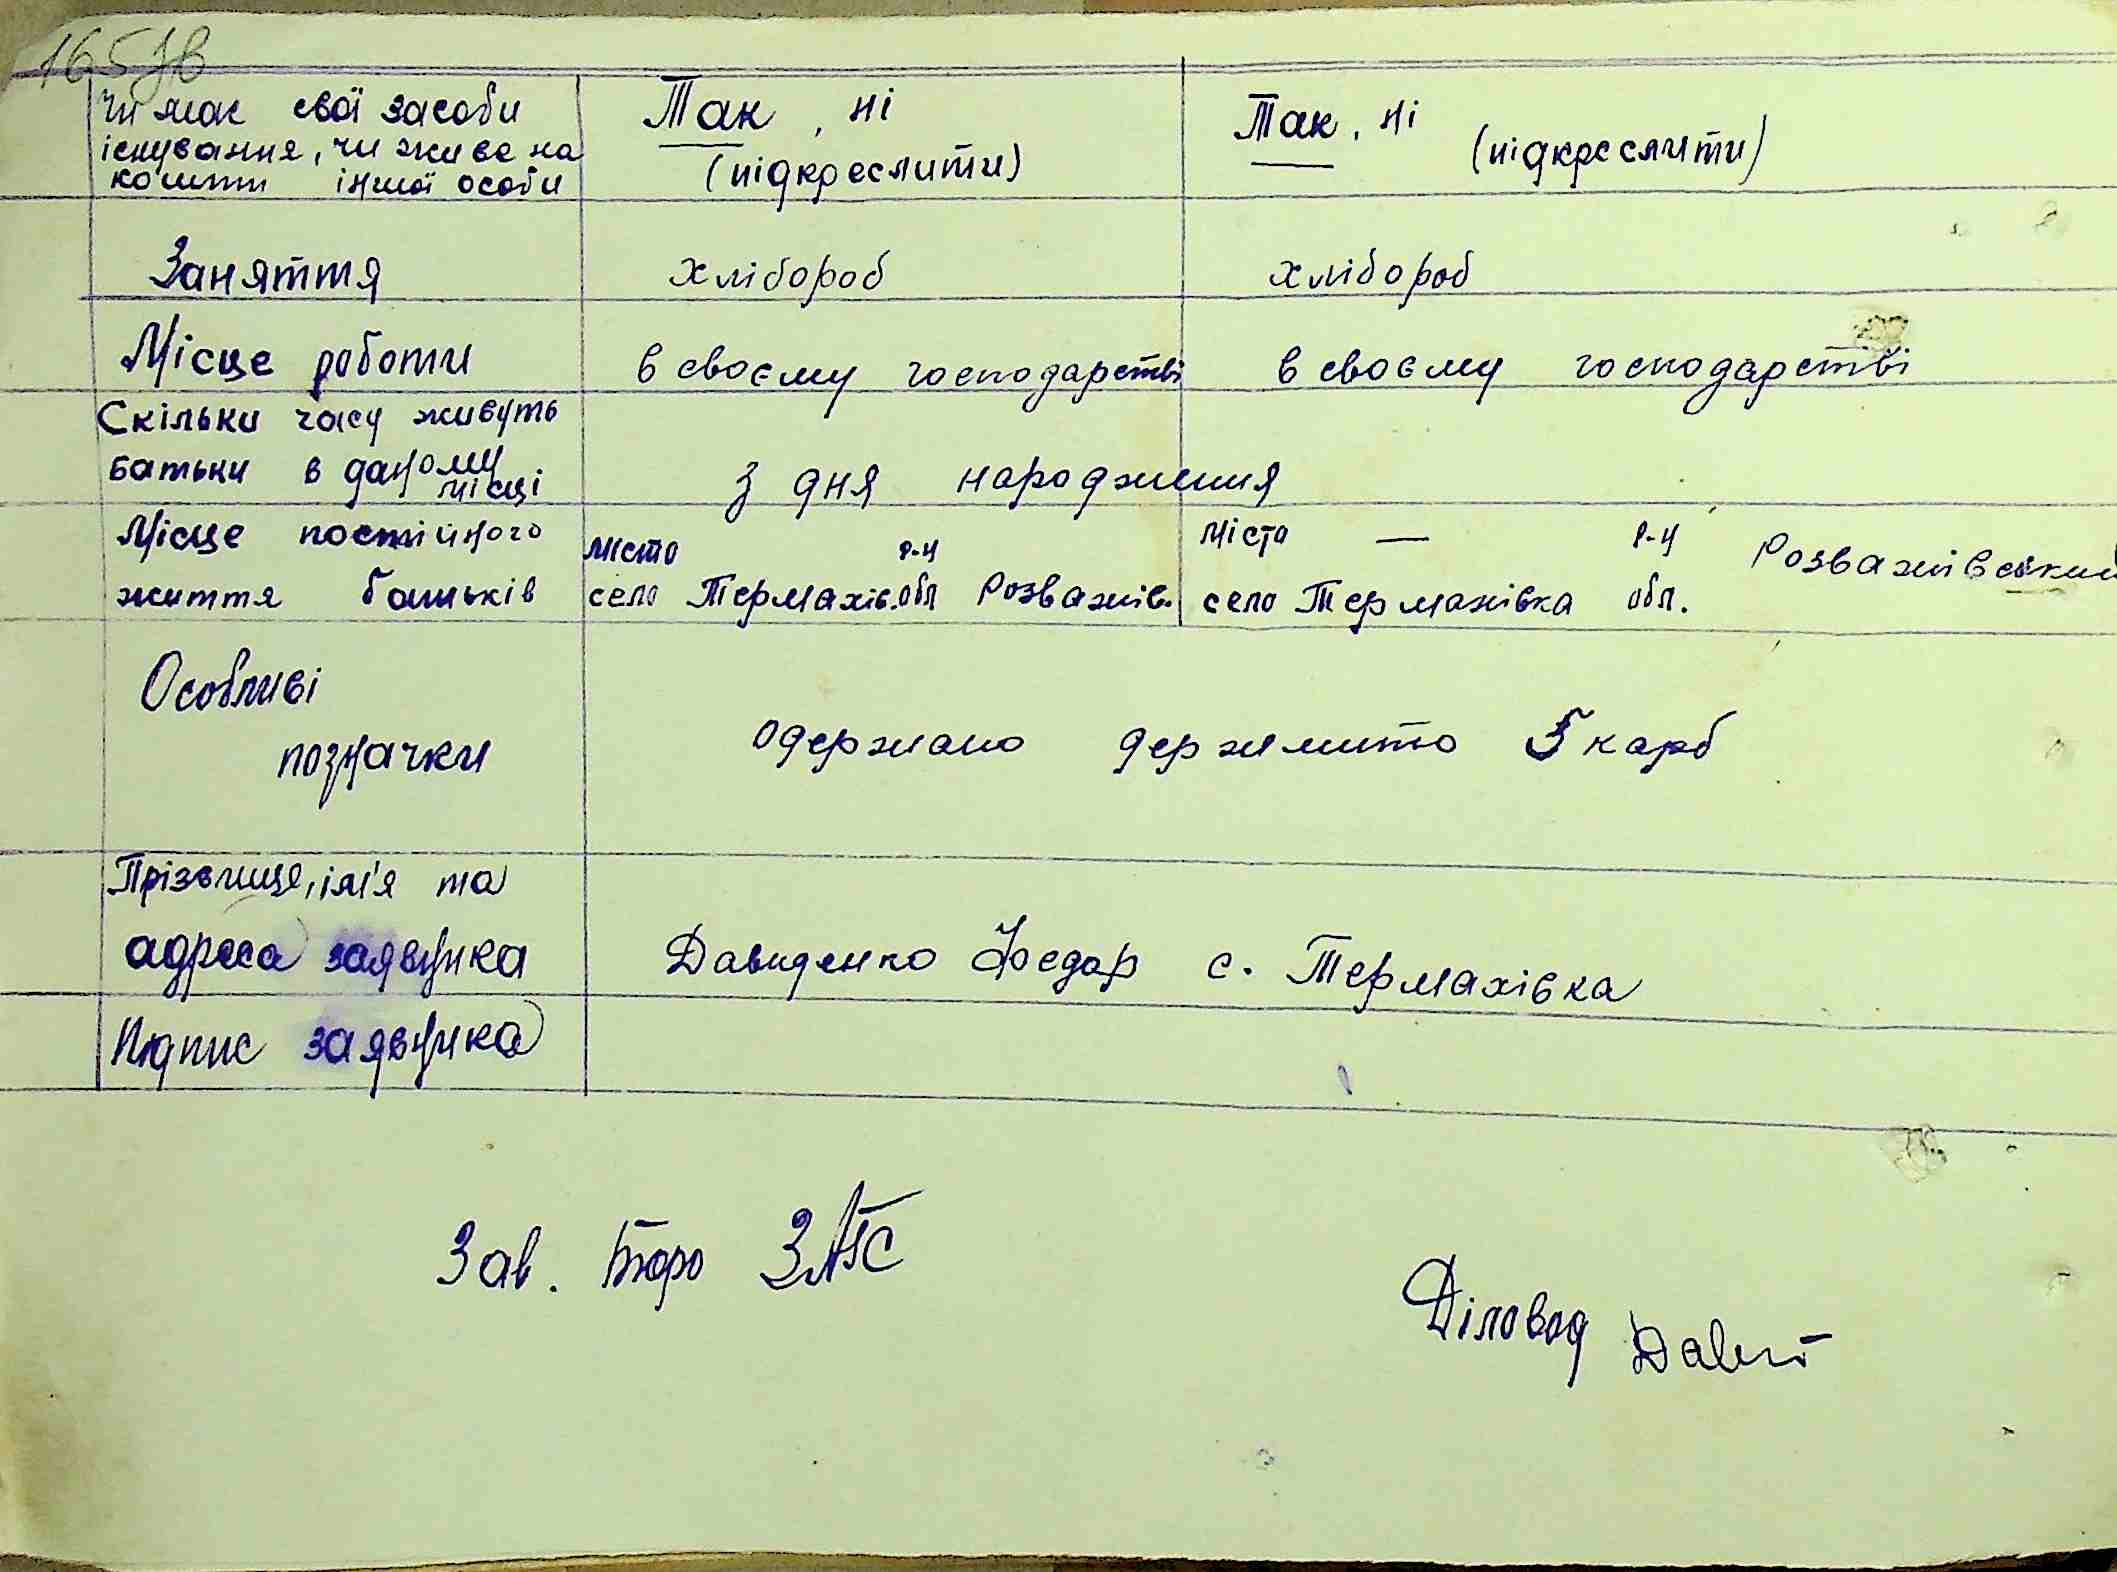 165зв
Чи має свої засоби
існування, чи живе на
кошти іншої особи
Так, ні
(підкреслити)
Так, ні
(підкреслити)
Заняття
хлібороб
хлібороб
Місце роботи
в своєму господарстві
в своєму господарстві
Скільки часу живуть
батьки в даному
місці
З дня народження
Місце постійного
життя батьків
місто р-н
село Термахів. обл Розважів.
міста — р-н Розважівський
село Термахівка обл.
Особливі
позначки
Одержано держмито 5 карб
Прізвище, ім'я та
адреса заявника
Давиденко Федор с. Термахівка
Підпис заявника
Зав. Бюро ЗАГС
Діловод